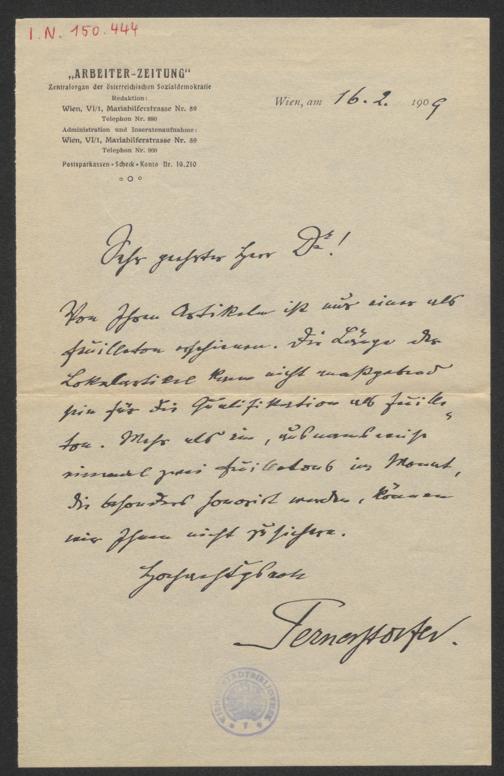 I.N. 150.444
„ARBEITER-ZEITUNG“
Zentralorgan der österreichischen Sozialdemokratie
Redaktion:
Wien, VI/1, Mariahilferstrasse Nr. 89
Telephon Nr. 880
Administration und Inseratenaufnahme:
Wien, VI/1, Mariahilferstrasse Nr. 89
Telephon Nr. 900
Postsparkassen-Scheck-Konto Nr. 10.210
Wien, am 16. 2. 1909
Sehr geehrter Herr Dr.!
Von Ihren Artikeln ist nur einer als
Feuilleton erschienen. Die Länge der
Lokalartikel kann nicht maßgebend
sein für die Qualifikation als Feuille-
ton. Mehr als ein, ausnamsweise
einmal zwei Feuilletons im Monat,
die besonders honorirt werden, können
wir Ihnen nicht zusichern.
Hochachtungsvoll
Pernerstorfer.
WIENER STADTBIBLIOTHEK